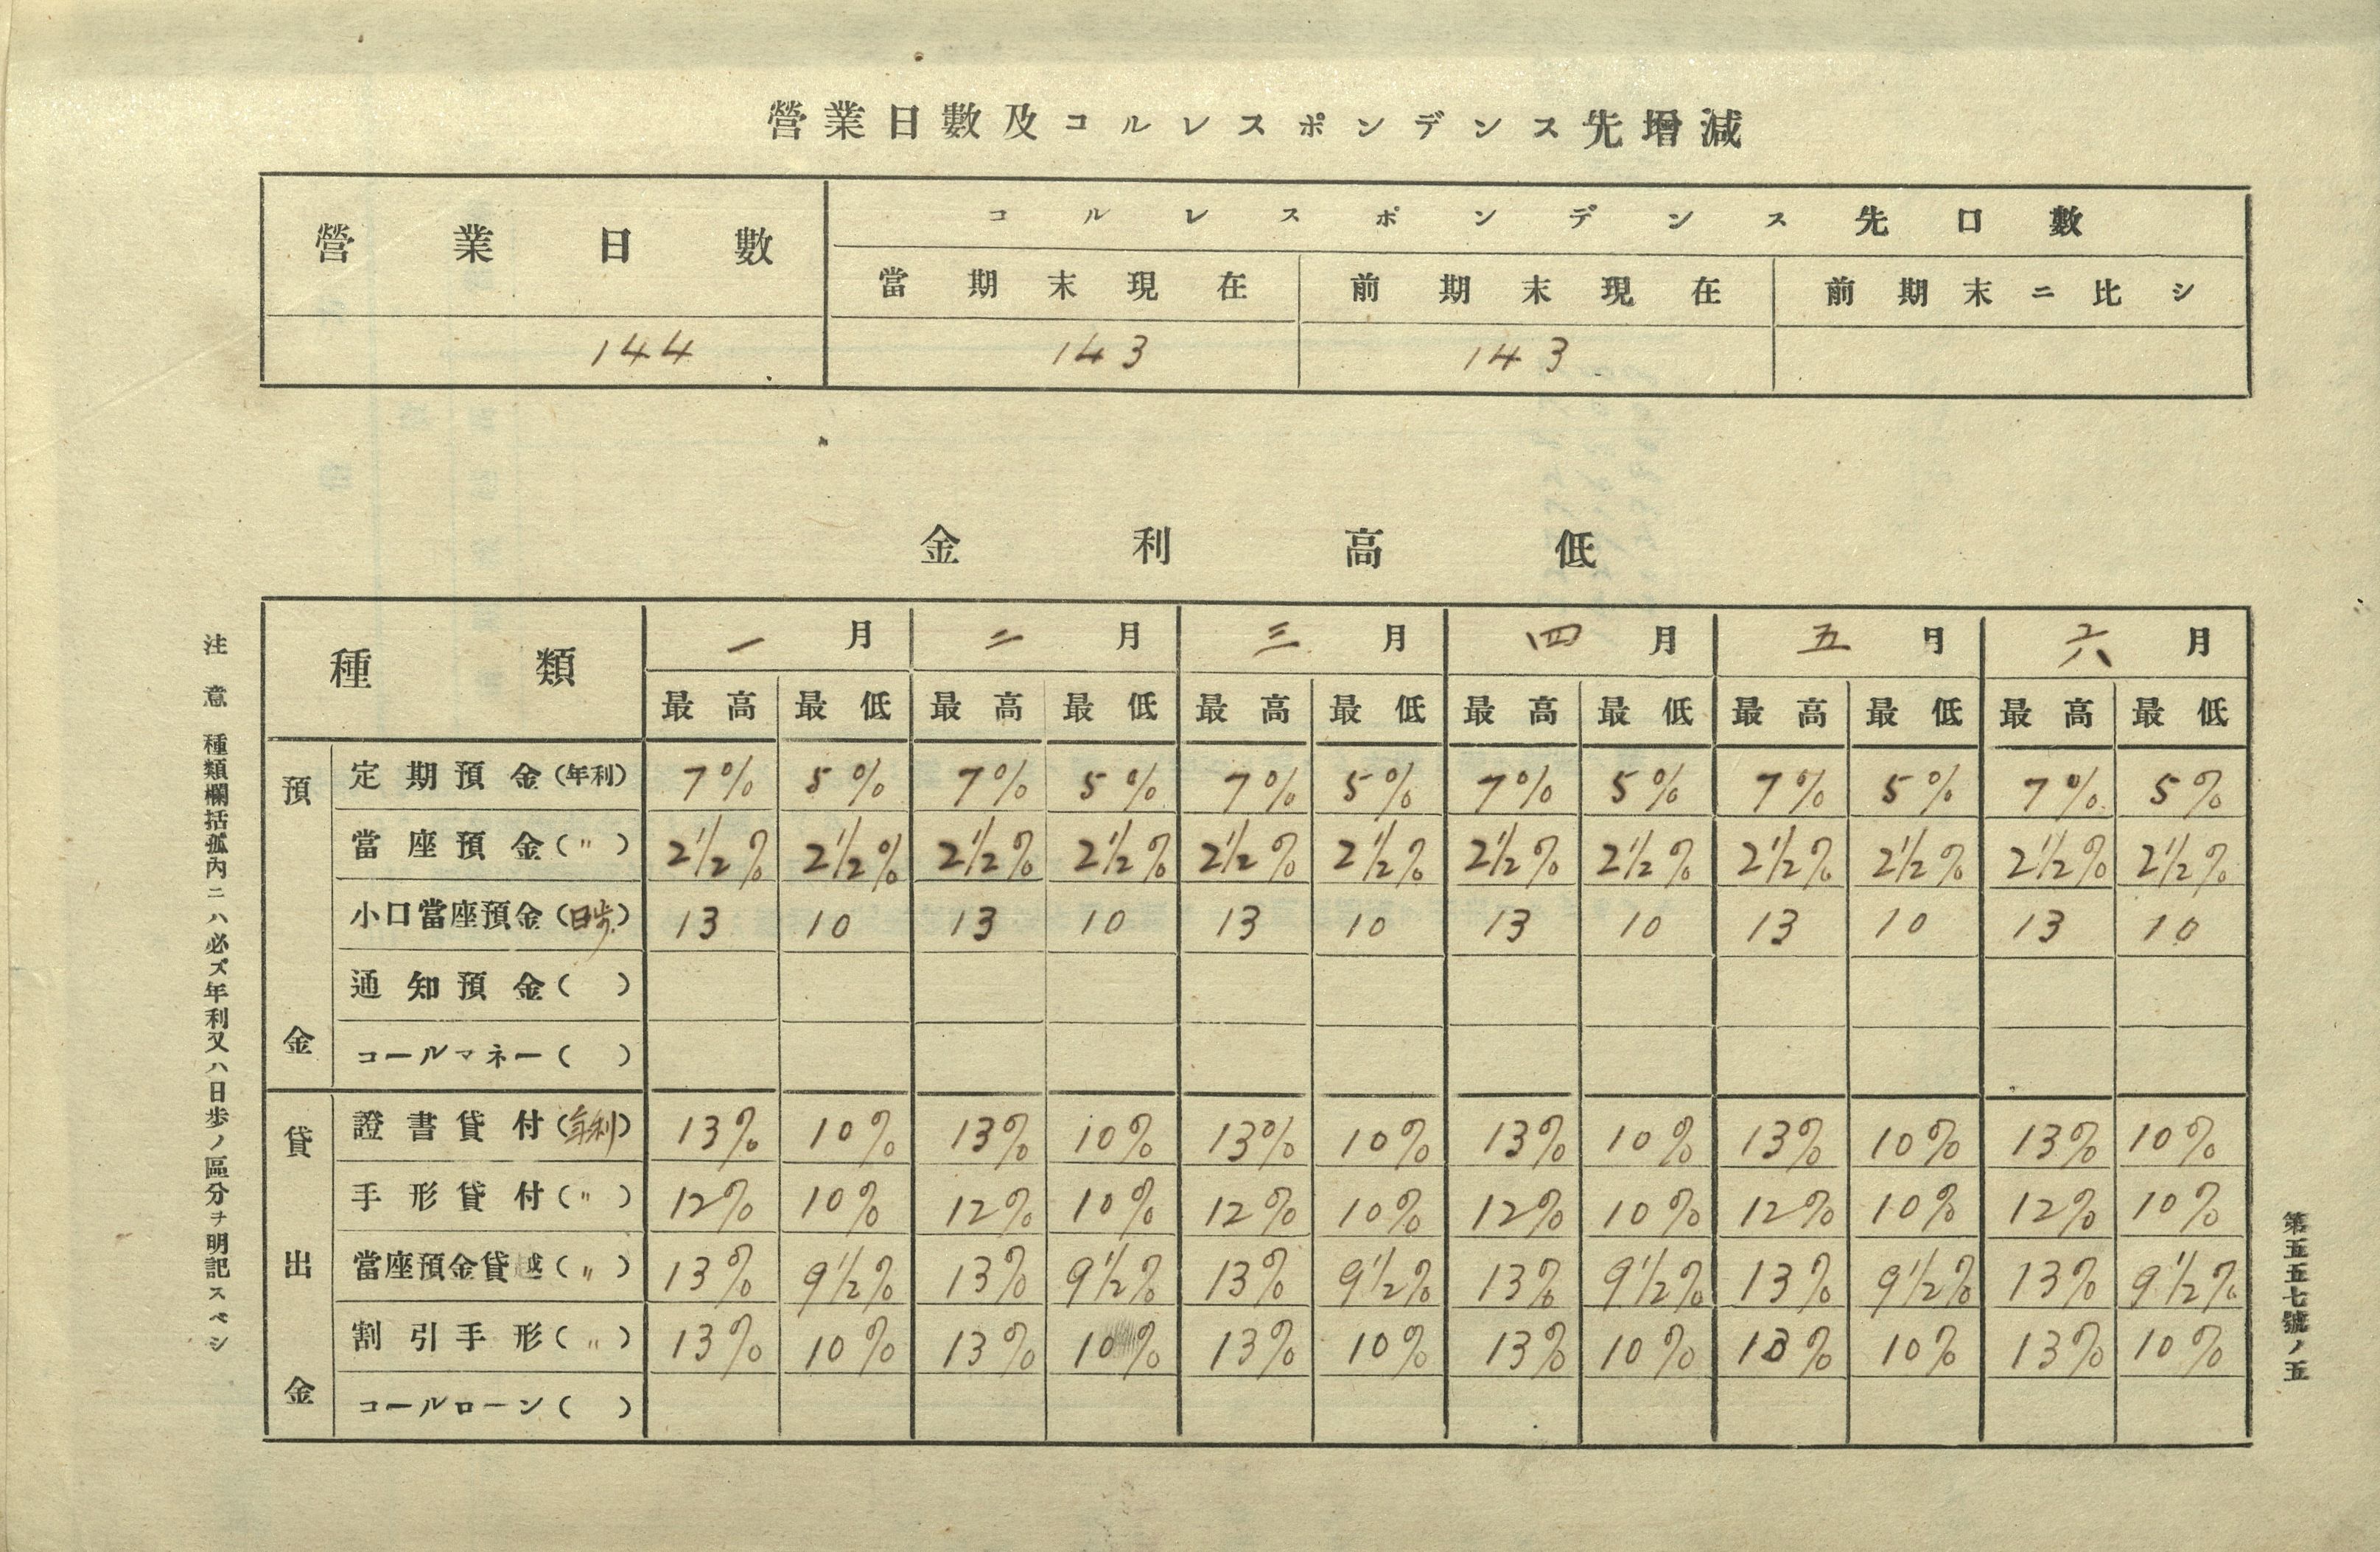 營業日數及コルレスポンデンス先增減
營業日數 コルレスポンデンス先口數
當期末現在 前期末現在 前期末ニ比シ
144 143 143
金利高低
種類 一月 二月 三月 四月 五月 六月
最高 最低 最高 最低 最高 最低 最高 最低 最高 最低 最高 最低
預金
定期預金(年利) 7% 5% 7% 5% 7% 5% 7% 5% 7% 5% 7% 5%
當座預金(〃) 2½% 2½% 2½% 2½% 2½% 2½% 2½% 2½% 2½% 2½% 2½% 2½%
小口當座預金(日歩) 13 10 13 10 13 10 13 10 13 10 13 10
通知預金( )
コールマネー( )
貸出金
證書貸付(年利) 13% 10% 13% 10% 13% 10% 13% 10% 13% 10% 13% 10%
手形貸付(〃) 12% 10% 12% 10% 12% 10% 12% 10% 12% 10% 12% 10%
當座預金貸越(〃) 13% 9½% 13% 9½% 13% 9½% 13% 9½% 13% 9½% 13% 9½%
割引手形(〃) 13% 10% 13% 10% 13% 10% 13% 10% 13% 10% 13% 10%
コールローン( )
注意 種類欄括孤內ニハ必ズ年利又ハ日歩ノ區分ヲ明記スベシ
第五五五七號ノ五